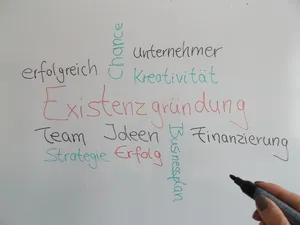 Chance
unternehmer
erfolgreich
Kreativität
Existenzgründung
Team Ideen
Businessplan
Finanzierung
Strategie Erfolg